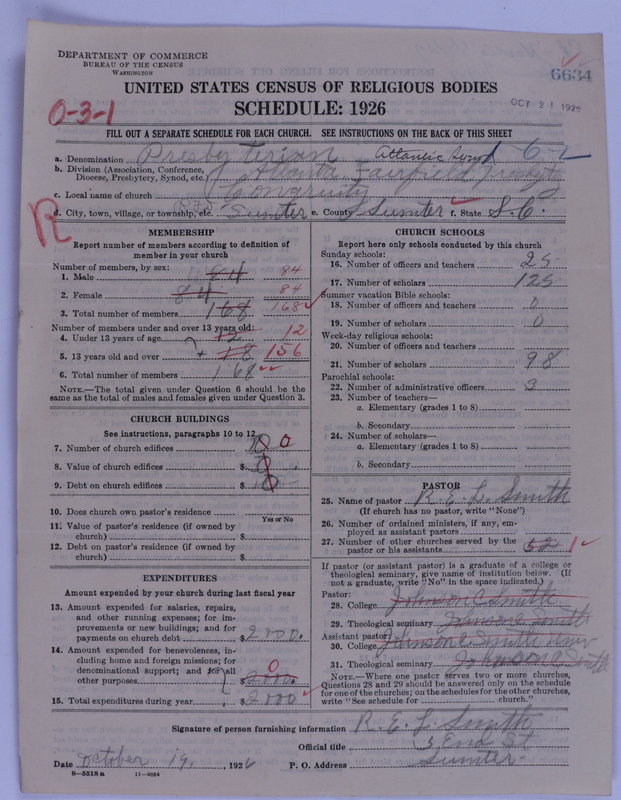 DEPARTMENT OF COMMERCE
BUREAU OF THE CENSUS
WASHINGTON
6634
UNITED STATES CENSUS OF RELIGIOUS BODIES
SCHEDULE: 1926
OCT 21 1926
0-3-1
FILL OUT A SEPARATE SCHEDULE FOR EACH CHURCH. SEE INSTRUCTIONS ON THE BACK OF THIS SHEET
a. Denomination Presbyterian Atlantic Synod 6-2
b. Division (Association, Conference, Diocese, Presbytery, Synod, etc.) Fairfield
c. Local name of church Congruity
d. City, town, village, or township, etc. Sumter e. County Sumter f. State S.C.
R
MEMBERSHIP
Report number of members according to definition of
member in your church
Number of members, by sex:
1. Male 84 84
2. Female 84 84
3. Total number of members 168 168
Number of members under and over 13 years old:
4. Under 13 years of age 12 12
5. 13 years old and over 156
6. Total number of members 168
NOTE.—The total given under Question 6 should be the
same as the total of males and females given under Question 3.
CHURCH BUILDINGS
See instructions, paragraphs 10 to 12
7. Number of church edifices 0
8. Value of church edifices $
9. Debt on church edifices $
10. Does church own pastor's residence
Yes or No
11. Value of pastor's residence (if owned by
church) $
12. Debt on pastor's residence (if owned by
church) $
EXPENDITURES
Amount expended by your church during last fiscal year
13. Amount expended for salaries, repairs,
and other running expenses; for im-
provements or new buildings; and for
payments on church debt $
14. Amount expended for benevolences, in-
cluding home and foreign missions; for
denominational support; and for all
other purposes $2000. 0
15. Total expenditures during year $2000
CHURCH SCHOOLS
Report here only schools conducted by this church
Sunday schools:
16. Number of officers and teachers 25
17. Number of scholars 125
Summer vacation Bible schools:
18. Number of officers and teachers 0
19. Number of scholars 0
Week-day religious schools:
20. Number of officers and teachers
21. Number of scholars 98
Parochial schools:
22. Number of administrative officers 3
23. Number of teachers—
a. Elementary (grades 1 to 8)
b. Secondary
24. Number of scholars—
a. Elementary (grades 1 to 8)
b. Secondary
PASTOR
25. Name of pastor R. E. L. Smith
(If church has no pastor, write "None")
26. Number of ordained ministers, if any, em-
ployed as assistant pastors
27. Number of other churches served by the
pastor or his assistants 52 1
If pastor (or assistant pastor) is a graduate of a college or
theological seminary, give name of institution below. (If
not a graduate, write "No" in the space indicated.)
Pastor:
28. College Johnson C. Smith
29. Theological seminary Johnson Smith
Assistant pastor:
30. College Johnson C. Smith Univ
31. Theological seminary Johnson Smith
NOTE.—Where one pastor serves two or more churches,
Questions 28 and 29 should be answered only on the schedule
for one of the churches; on the schedules for the other churches,
write "See schedule for church."
Signature of person furnishing information R. E. L. Smith
Official title 3 End St
Date October 19, 1926 P. O. Address Sumter
8—5518 a 11—9064